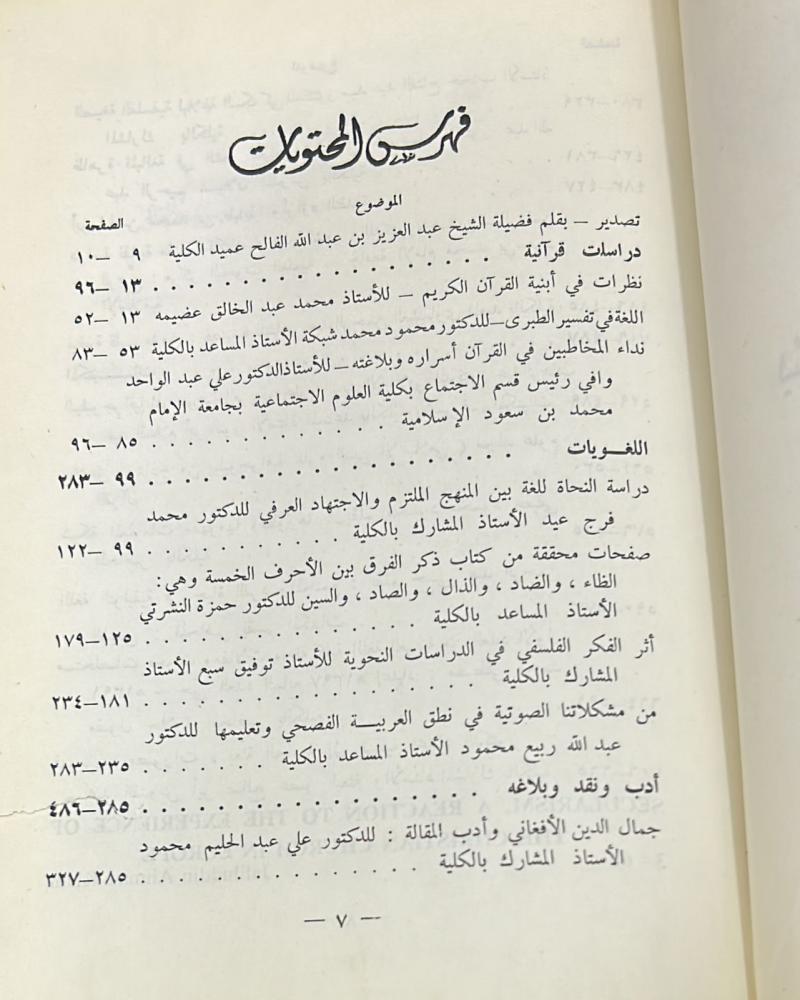 فهرس المحتويات
الموضوع
الصفحة
تصدير – بقلم فضيلة الشيخ عبد العزيز بن عبد الله الفالح عميد الكلية ٩ –١٠
دراسات قرآنية . . . . . . . . . . . . . . . . . ١٣ –٩٦
نظرات في أبنية القرآن الكريم – للأستاذ محمد عبد الخالق عضيمه ١٣ –٥٢
اللغة في تفسير الطبرى – للدكتور محمود محمد شبكة الأستاذ المساعد بالكلية ٥٣ –٨٣
نداء المخاطبين في القرآن أسراره وبلاغته – للأستاذ الدكتور علي عبد الواحد
وافي رئيس قسم الاجتماع بكلية العلوم الاجتماعية بجامعة الإمام
محمد بن سعود الإسلامية . . . . . . . . . . . . ٨٥ –٩٦
اللغـــويات . . . . . . . . . . . . . . . . . . ٩٩ –٢٨٣
دراسة النحاة للغة بين المنهج الملتزم والاجتهاد العرفي للدكتور محمد
فرج عيد الأستاذ المشارك بالكلية . . . . . . . . . . . ٩٩ –١٢٢
صفحات محققة من كتاب ذكر الفرق بين الأحرف الخمسة وهي :
الظاء ، والضاد ، والذال ، والصاد ، والسين للدكتور حمزة النشرتي
الأستاذ المساعد بالكلية . . . . . . . . . . . . . ١٢٥–١٧٩
أثر الفكر الفلسفي في الدراسات النحوية للأستاذ توفيق سبع الأستاذ
المشارك بالكلية . . . . . . . . . . . . . . . ١٨١–٢٣٤
من مشكلاتنا الصوتية في نطق العربيـــة الفصحي وتعليمها للدكتور
عبد الله ربيع محمود الأستاذ المساعد بالكلية . . . . . . . ٢٣٥–٢٨٣
أدب ونقد وبلاغه . . . . . . . . . . . . . . . . ٢٨٥–٤٨٦
جمال الدين الأفغاني وأدب المقالة : للدكتور علي عبد الحليم محمود
الأستاذ المشارك بالكلية . . . . . . . . . . . . . ٢٨٥–٣٢٧
— ٧ —